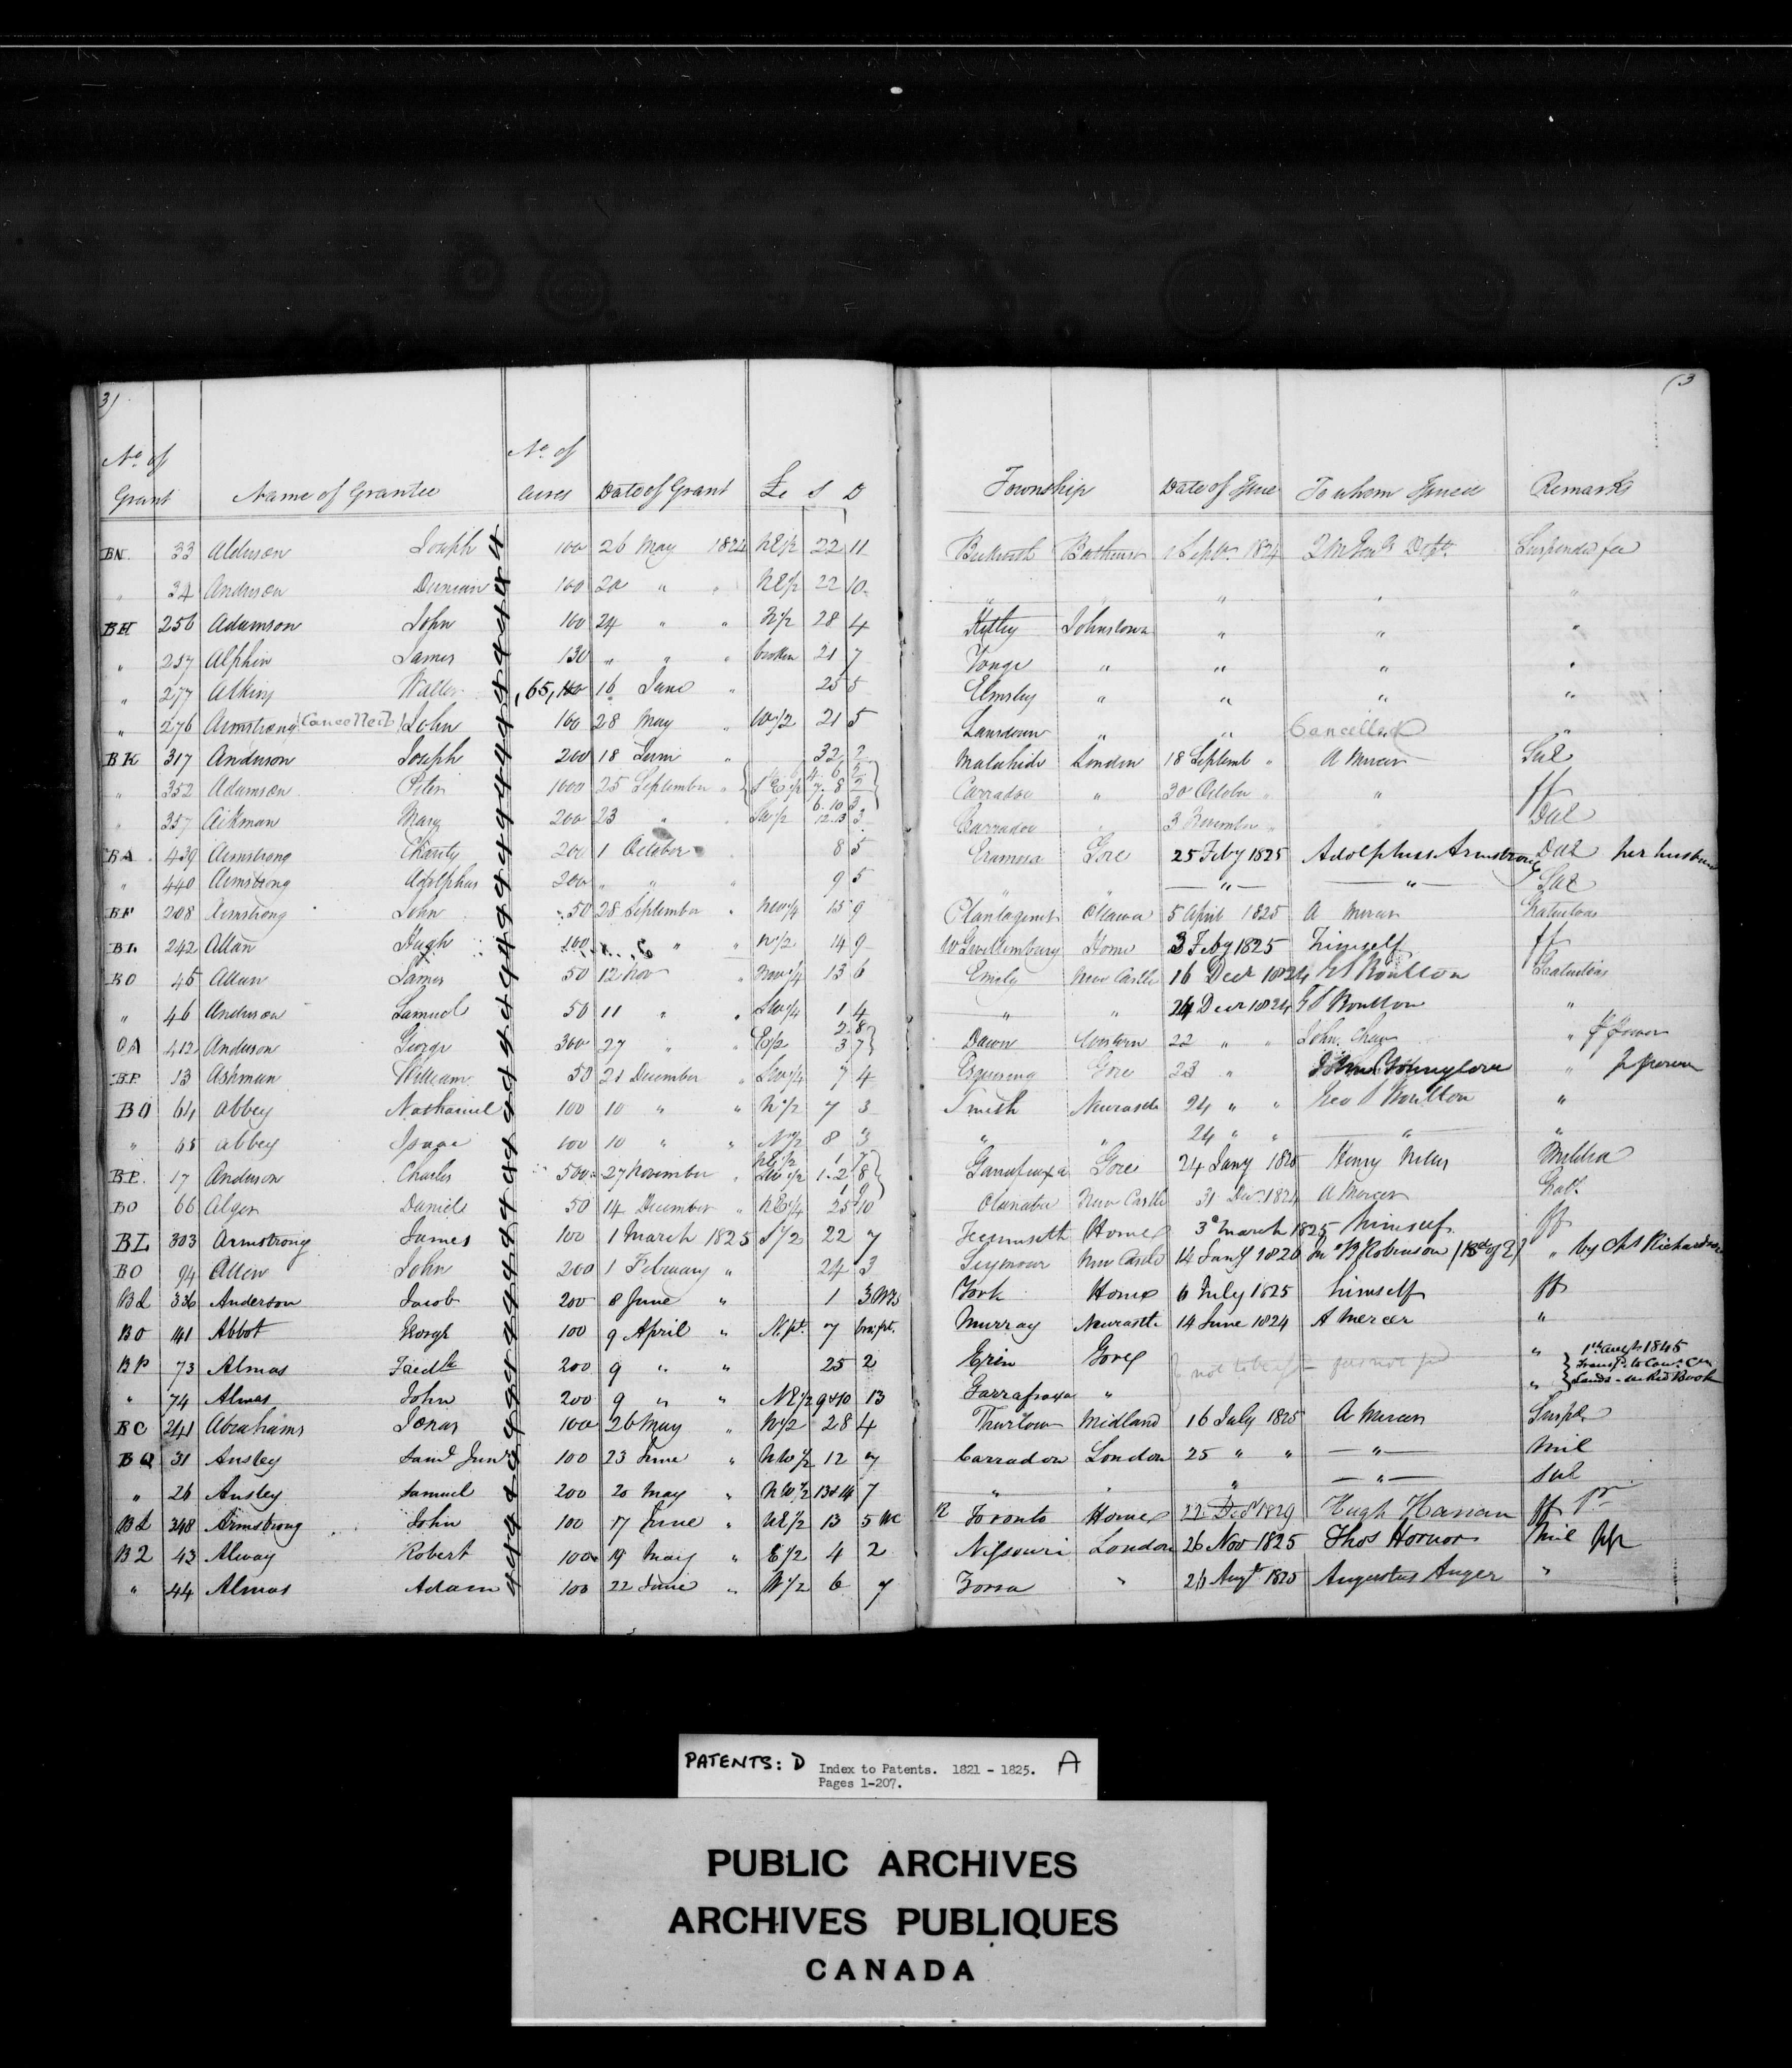 3)
(3
No of Grant Name of Grantee No of Acres Date of Grant Lt C Township Date of Issue To whom Issued Remarks
BN 33 Alderson Joseph 4 100 26 May 1824 NE½ 22 11 Beckwith Bathurst 1 Septr 1824 Suspended fee
" 34 Anderson Duncan 4 100 20 " " NE½ 22 10 " " " " "
BH 256 Adamson John 4 100 24 " " N½ 28 4 Kitley Johnstown " " "
" 257 Alphin James 4 130 " " " broken 21 7 Yonge " " " "
" 277 Atkins Walter 4 65, 16 June " 25 5 Elmsley " " " "
" 276 Armstrong (Cancelled) John 4 100 28 May " W½ 21 5 Lansdown " " Cancelled "
BK 317 Anderson Joseph 4 200 18 June " 32 2 Malahide London 18 Septemb " A Mercer
" 352 Adamson Peter 4 1000 25 September " Carradoc " 30 October " "
" 357 Aikman Mary 4 200 23 " " 6.10 3 12.13 3 Carradoc " 3 November "
BA 439 Armstrong Charity 4 200 1 October " 8 5 Eramosa Gore 25 Feby 1825 Adolphus Armstrong her husband
" 440 Armstrong Adolphus 4 200 " " " 9 5 " " "
BF 208 Armstrong John 4 50 28 September " NW¼ 15 9 Plantagenet Ottawa 5 April 1825 A Mercer Gratuitous
BL 242 Allan Hugh 4 100 " " N½ 14 9 W Gwillimbury Home 3 Feby 1825 himself ff
BO 45 Allan James 4 50 12 Nov " NW¼ 13 6 Emily New Castle 16 Decr 1824 G S Boulton Gratuitous
" 46 Anderson Samuel 4 50 11 " " SW¼ 1 4 " " 24 Decr 1824 G S Boulton "
OA 412 Anderson George 4 300 27 " " E½ 2.8 3 7} Dawn Western 22 " " John "
BP 13 Ashman William 4 50 21 December " SW¼ 7 4 Esquesing Gore 23 " "
BO 64 Abbey Nathaniel 4 100 10 " " N½ 7 3 Smith Newcastle 24 " " Geo S Boulton "
" 65 Abbey Isaac 4 100 10 " " N½ 8 3 " " 24 " " " "
BP 17 Anderson Charles 4 500 27 November " Garrafraxa Gore 24 Jany 1825 Henry Militia
BO 66 Alger Daniel 4 50 14 December " NE¼ 25 10 Otanabee New Castle 31 Decr 1824 A Mercer Grat.
BL 303 Armstrong James 4 100 1 March 1825 S½ 22 7 Tecumseth Home 3d March 1825 himself ff
BO 94 Allen John 4 200 1 February " 24 3 Seymour New Castle 14 Jany 1826 Robinson " by Chs Richardson
BL 336 Anderson Jacob 4 200 8 June " 1 3 York Home 6 July 1825 himself ff
BO 141 Abbot George 4 100 9 April " N.pt. 7 bro.ft. Murray Newcastle 14 June 1824 A Mercer "
BP 73 Almas Fredk 4 200 9 " " 25 2 Erin Gore " 1st Augt 1845
" 74 Almas John 4 200 9 " " NE½ 9&10 13 Garrafraxa " " Lands - see Red Book
BC 241 Abrahams Jonas 4 100 26 May " W½ 28 4 Thurlow Midland 16 July 1825 A Mercer Suspd
BQ 31 Ansley Saml Junr 4 100 23 June " NW½ 12 7 Carradoc London 25 " " " Mil
" 26 Ansley Samuel 4 200 20 May " NW½ 13&14 7 " " " "
BL 348 Armstrong John 4 100 17 June " NE½ 13 5 WC R Toronto Home 22 Decr 1829 Hugh ff
B2 43 Alway Robert 4 100 19 May " E½ 4 2 Nissouri London 26 Nov 1825 Thos Hornor Mil
" 44 Almas Adam 4 100 22 June " W½ 6 7 Zorra " 26 Augt 1825 Augustus Auger "
PATENTS: D Index to Patents. 1821 - 1825. A
Pages 1-207.
PUBLIC ARCHIVES
ARCHIVES PUBLIQUES
CANADA